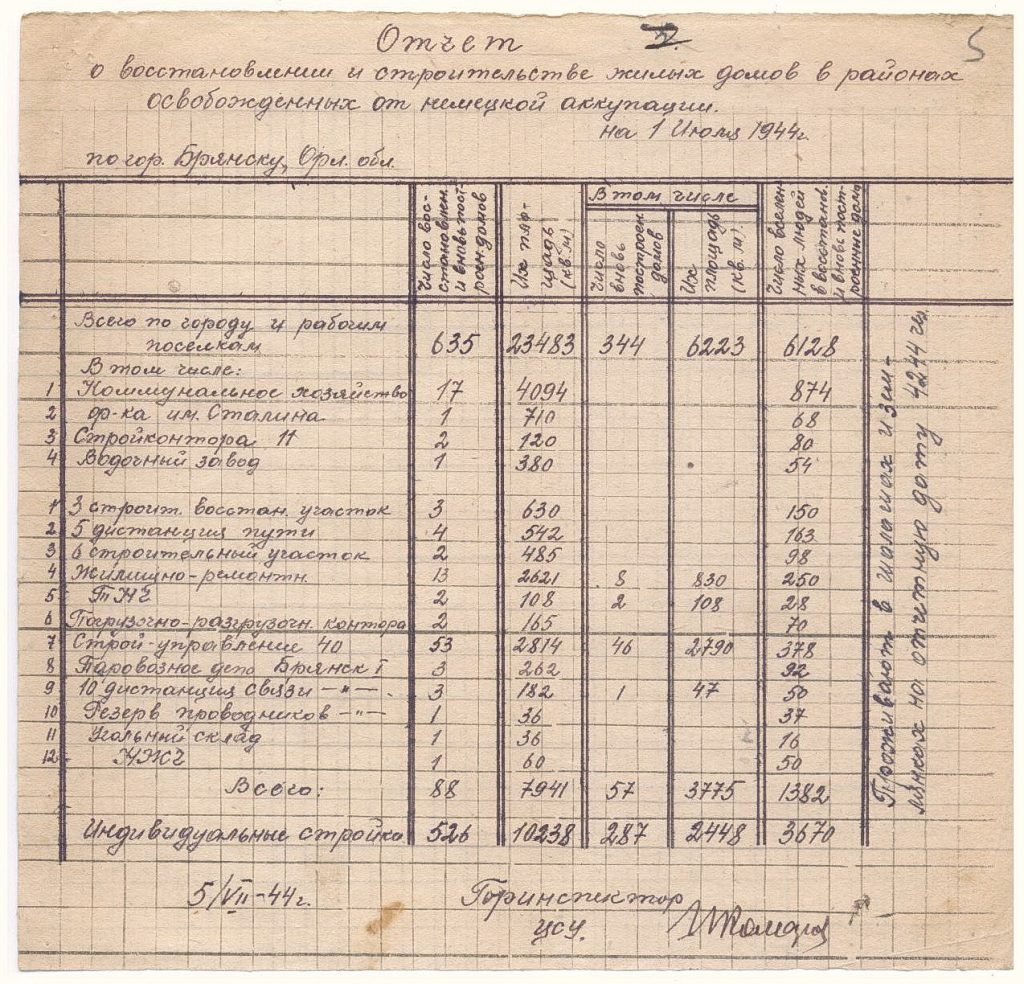 Отчет
5
о восстановлении и строительстве жилых домов в районах
освобожденных от немецкой аккупации.
на 1 Июля 1944г.
по гор. Брянску, Орл. обл.
Число вос-
становлен.
и вновь пост-
роен. домов
Их пло-
щадь
(кв. м)
В том числе
Число
вновь
построен.
домов
Их
площадь
(кв. м).
Число вселен-
ных людей
в восстанов.
и вновь пост-
роенные дома
Всего по городу и рабочим
поселкам 635 23483 344 6223 6128
В том числе:
1 Коммунальное хозяйство 17 4094 874
2 ф-ка им. Сталина 1 710 68
3 Стройконтора 11 2 120 80
4 Водочный завод 1 380 54
1 3 строит. восстан. участок 3 630 150
2 5 дистанция пути 4 542 163
3 6 строительный участок 2 485 98
4 Жилищно-ремонтн. 13 2621 8 830 250
5 ТНЧ 2 108 2 108 28
6 Погрузочно-разгрузочн. контора 2 165 70
7 Строй-управление 40 53 2814 46 2790 378
8 Паровозное депо Брянск I 3 262 92
9 10 дистанция связи —"—. 3 182 1 47 50
10 Резерв проводников —"— 1 36 37
11 Угольный склад 1 36 16
12 НЖЧ 1 60 50
Всего: 88 7941 57 3775 1382
Индивидуальные стройки 526 10238 287 2448 3670
Проживают в шалашах и зем-
лянках на отчетную дату 4244 чел.
5/VII-44г.
Горинспектор
ЦСУ.